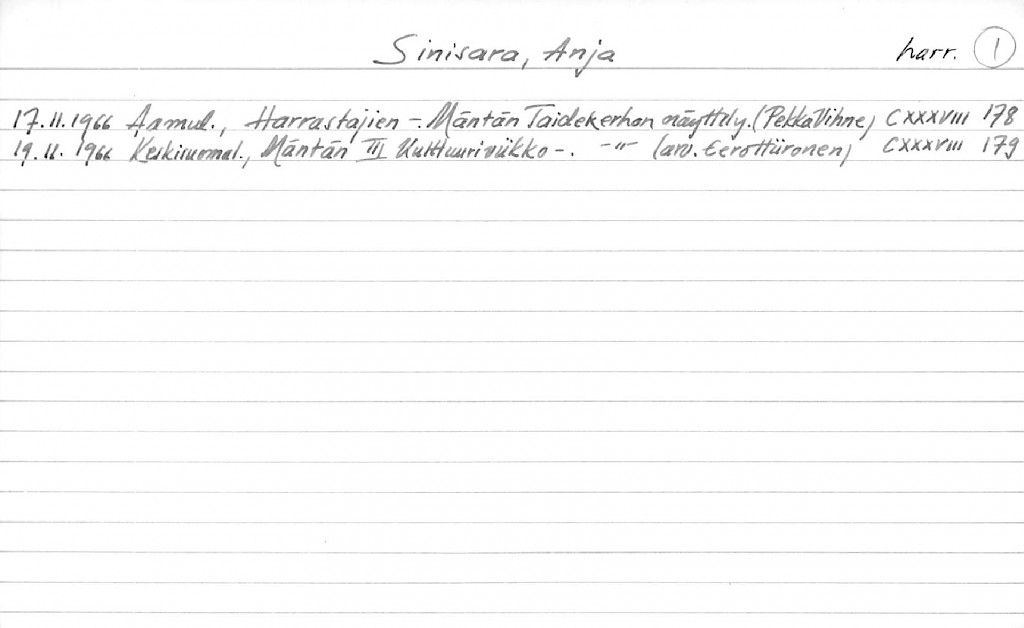 Sinisara, Anja harr. 1
17.11.1966 Aamul., Harrastajien – Mäntän Taidekerhon näyttely. (Pekka Vihne) CXXXVIII 178
19.11.1966 Keskisuomal., Mäntän III Kulttuuriviikko –. –"– (arv. Eero Hiironen) CXXXVIII 179